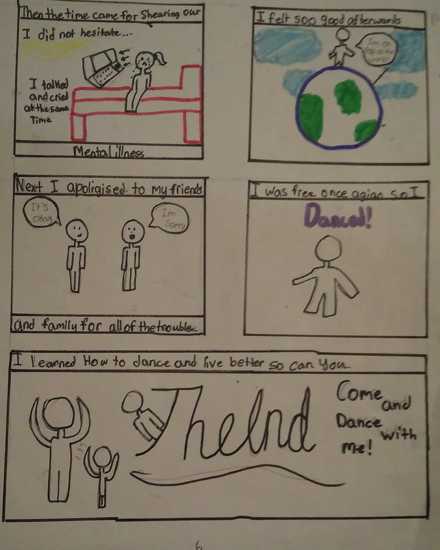 Then the time came for Shearing our
I did not hesitate...
I talked
and cried
at the same
Time
Mental illness
I felt soo good afterwards
I'm on
top of the
world!
Next I apoligised to my friends
It's
okay
I'm
Sorry
and family for all of the trouble.
I was free once agian so I
Danced!
I learned How to dance and live better so can you.
The End
Come
and
Dance
with
me!
6